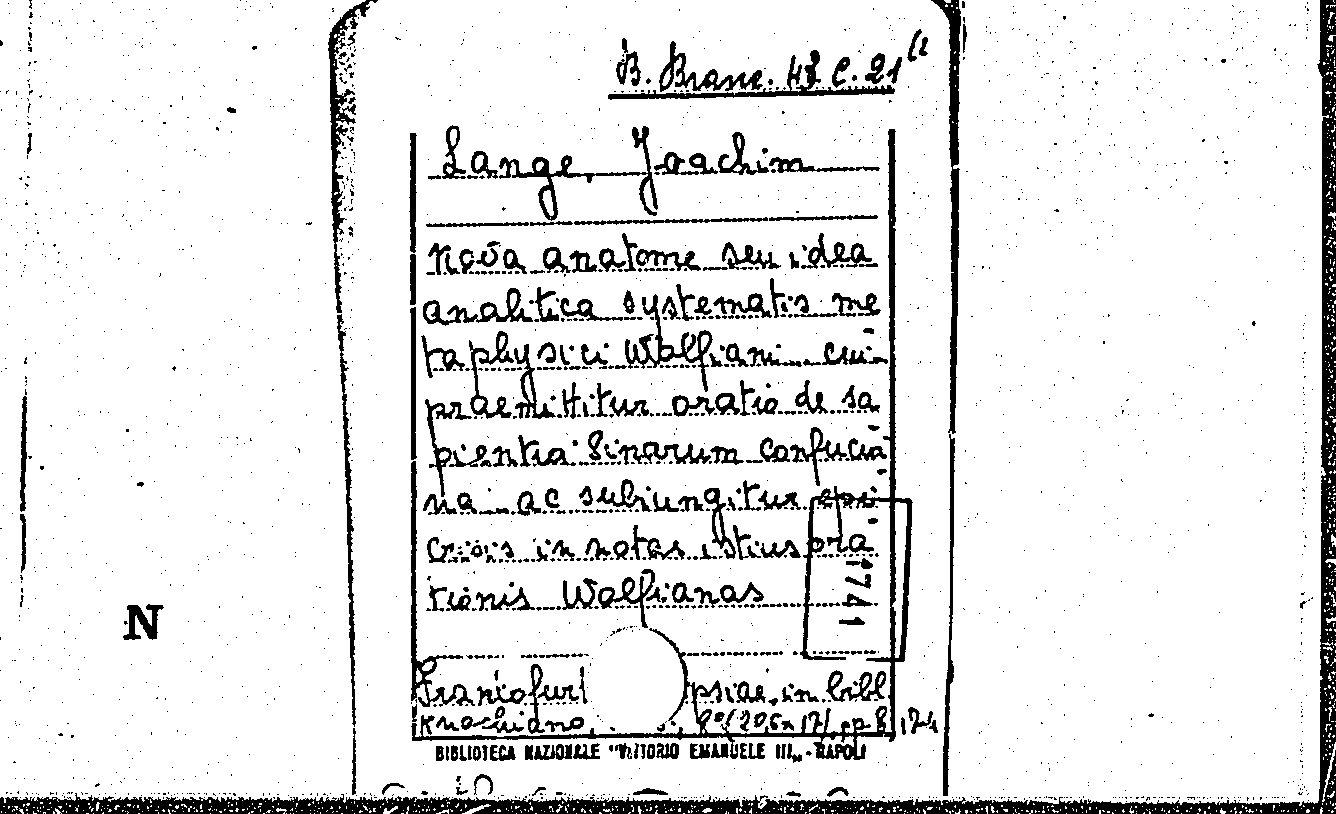 B. Branc. 43 C. 21
Lange, Joachim
Nova anatome seu idea
analitica systematis me
taphysici Wolfiani... cui
praemittitur oratio de sa
pientia Sinarum confucia
na... ac subiungitur epi
crisis in notas istius ora
tionis Wolfianas
1741
Francofur psiae, in bibl
Knochiano, 8° (20,5x17), pp. 8, 174
BIBLIOTECA NAZIONALE "VITTORIO EMANUELE III" - NAPOLI
N